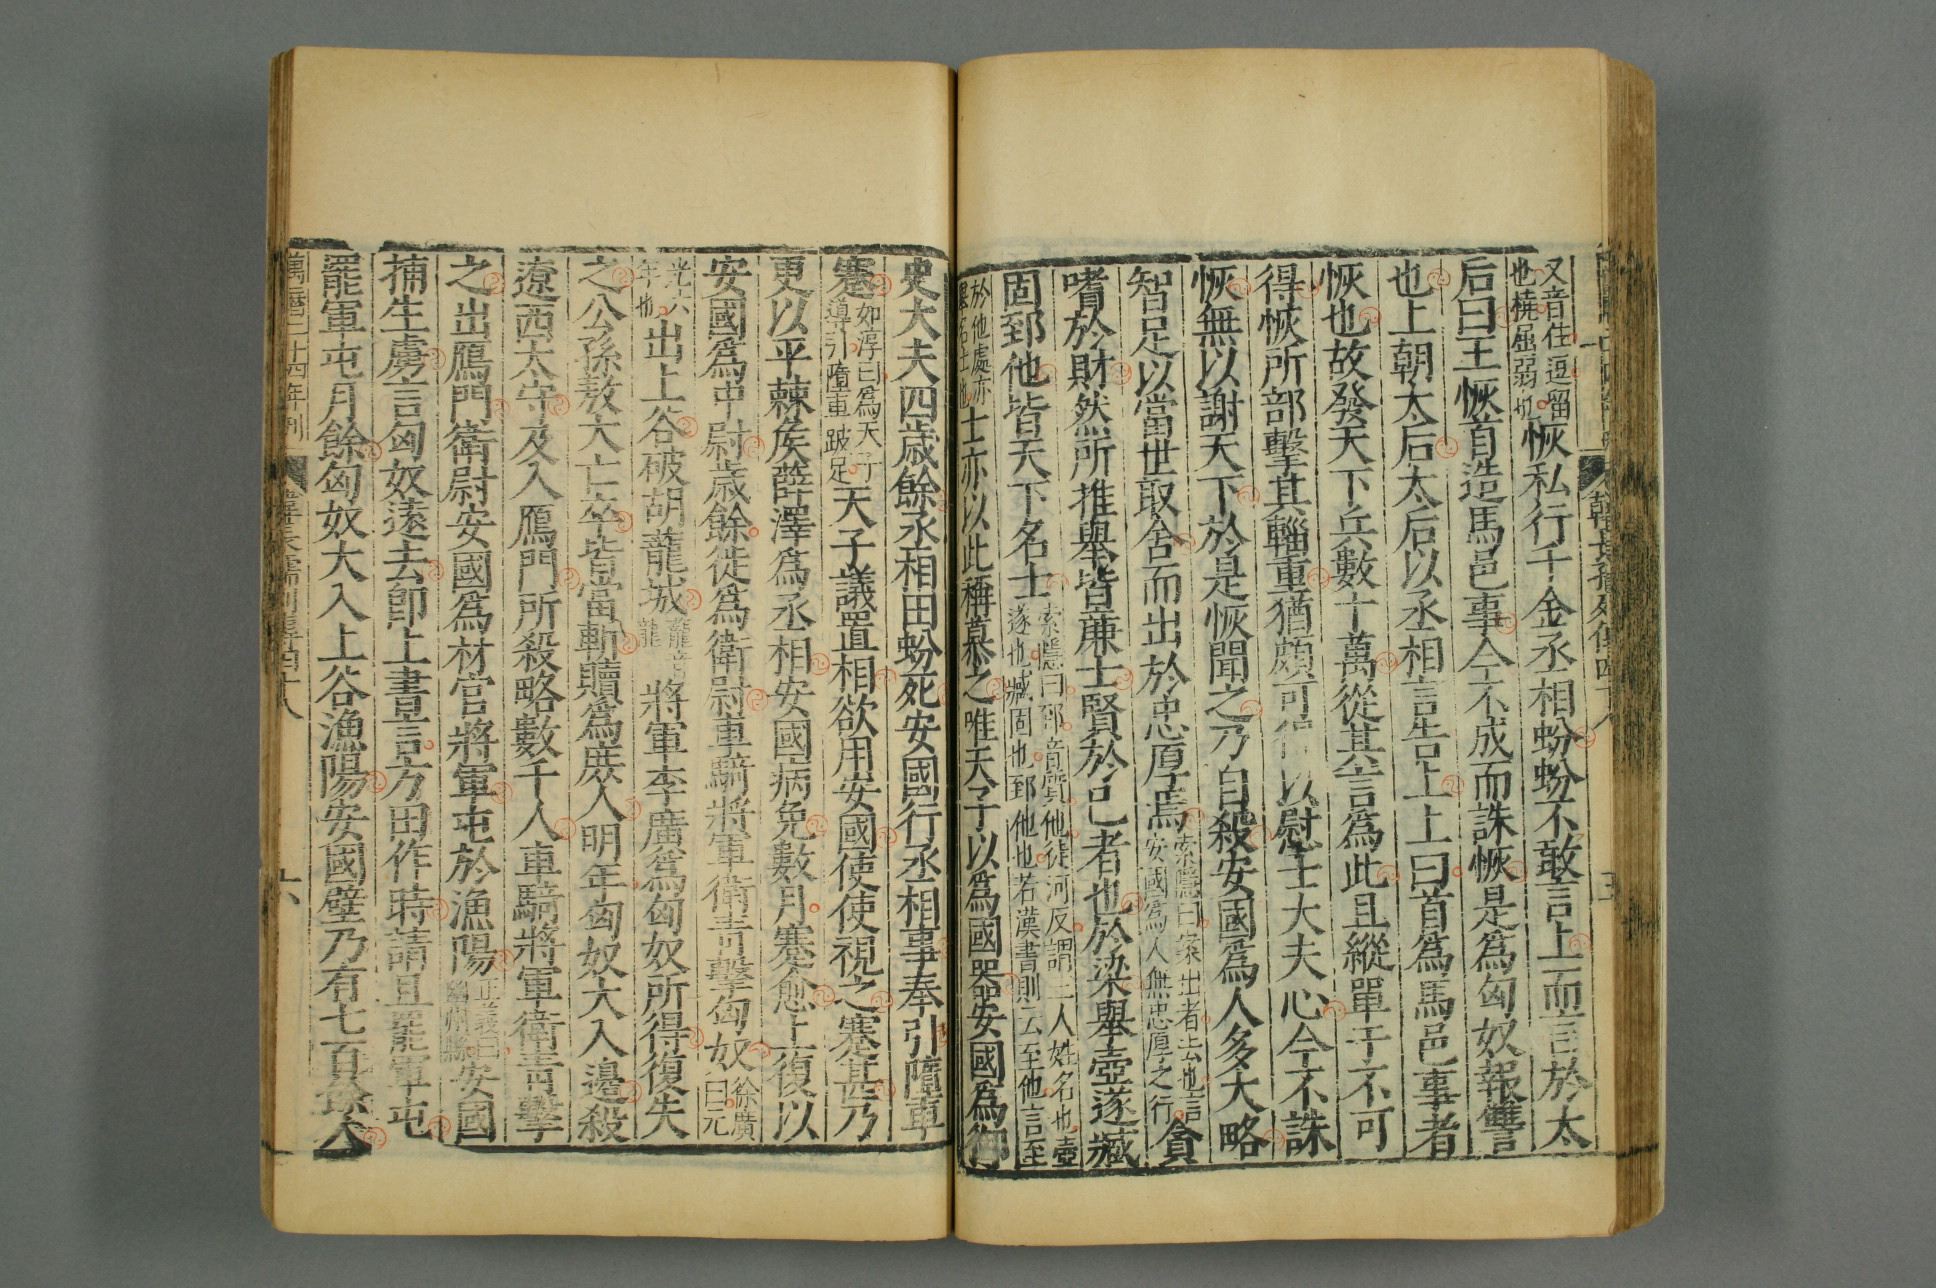 又音住逗留
也橈屈弱也
恢私行千金丞相蚡蚡不敢言上而言於太
后曰王恢首造馬邑事今不成而誅恢是爲匈奴報讐
也上朝太后太后以丞相言告上上曰首爲馬邑事者
恢也故發天下兵數十萬從其言爲此且縱單于不可
得恢所部擊其輜重猶頗可得以慰士大夫心今不誅
恢無以謝天下於是恢聞之乃自殺安國爲人多大略
智足以當世取舍而出於忠厚焉
索隱曰案出者去也言
安國爲人無忠厚之行
貪
嗜於財然所推舉皆廉士賢於己者也於梁舉壺遂臧
固郅他皆天下名士
索隱曰郅音質他徒河反謂三人姓名也壺
遂也臧固也郅他也若漢書則云至他言至
於他處亦
舉名士也
士亦以此稱慕之唯天子以爲國器安國爲御
史大夫四歲餘丞相田蚡死安國行丞相事奉引墮車
蹇
如淳曰爲天子
導引墮車跛足
天子議置相欲用安國使使視之蹇甚乃
更以平棘侯薛澤爲丞相安國病免數月蹇愈上復以
安國爲中尉歲餘徙爲衛尉車騎將軍衛青擊匈奴
徐廣
曰元
光六
年也
出上谷破胡蘢城
蘢音
龍
將軍李廣爲匈奴所得復失
之公孫敖大亡卒皆當斬贖爲庶人明年匈奴大入邊殺
遼西太守及入鴈門所殺略數千人車騎將軍衛青擊
之出鴈門衛尉安國爲材官將軍屯於漁陽
正義曰
幽州縣
安國
捕生虜言匈奴遠去卽上書言方田作時請且罷軍屯
罷軍屯月餘匈奴大入上谷漁陽安國壁乃有七百餘人
萬曆二十四年刊
韓長孺列傳四十八
十六